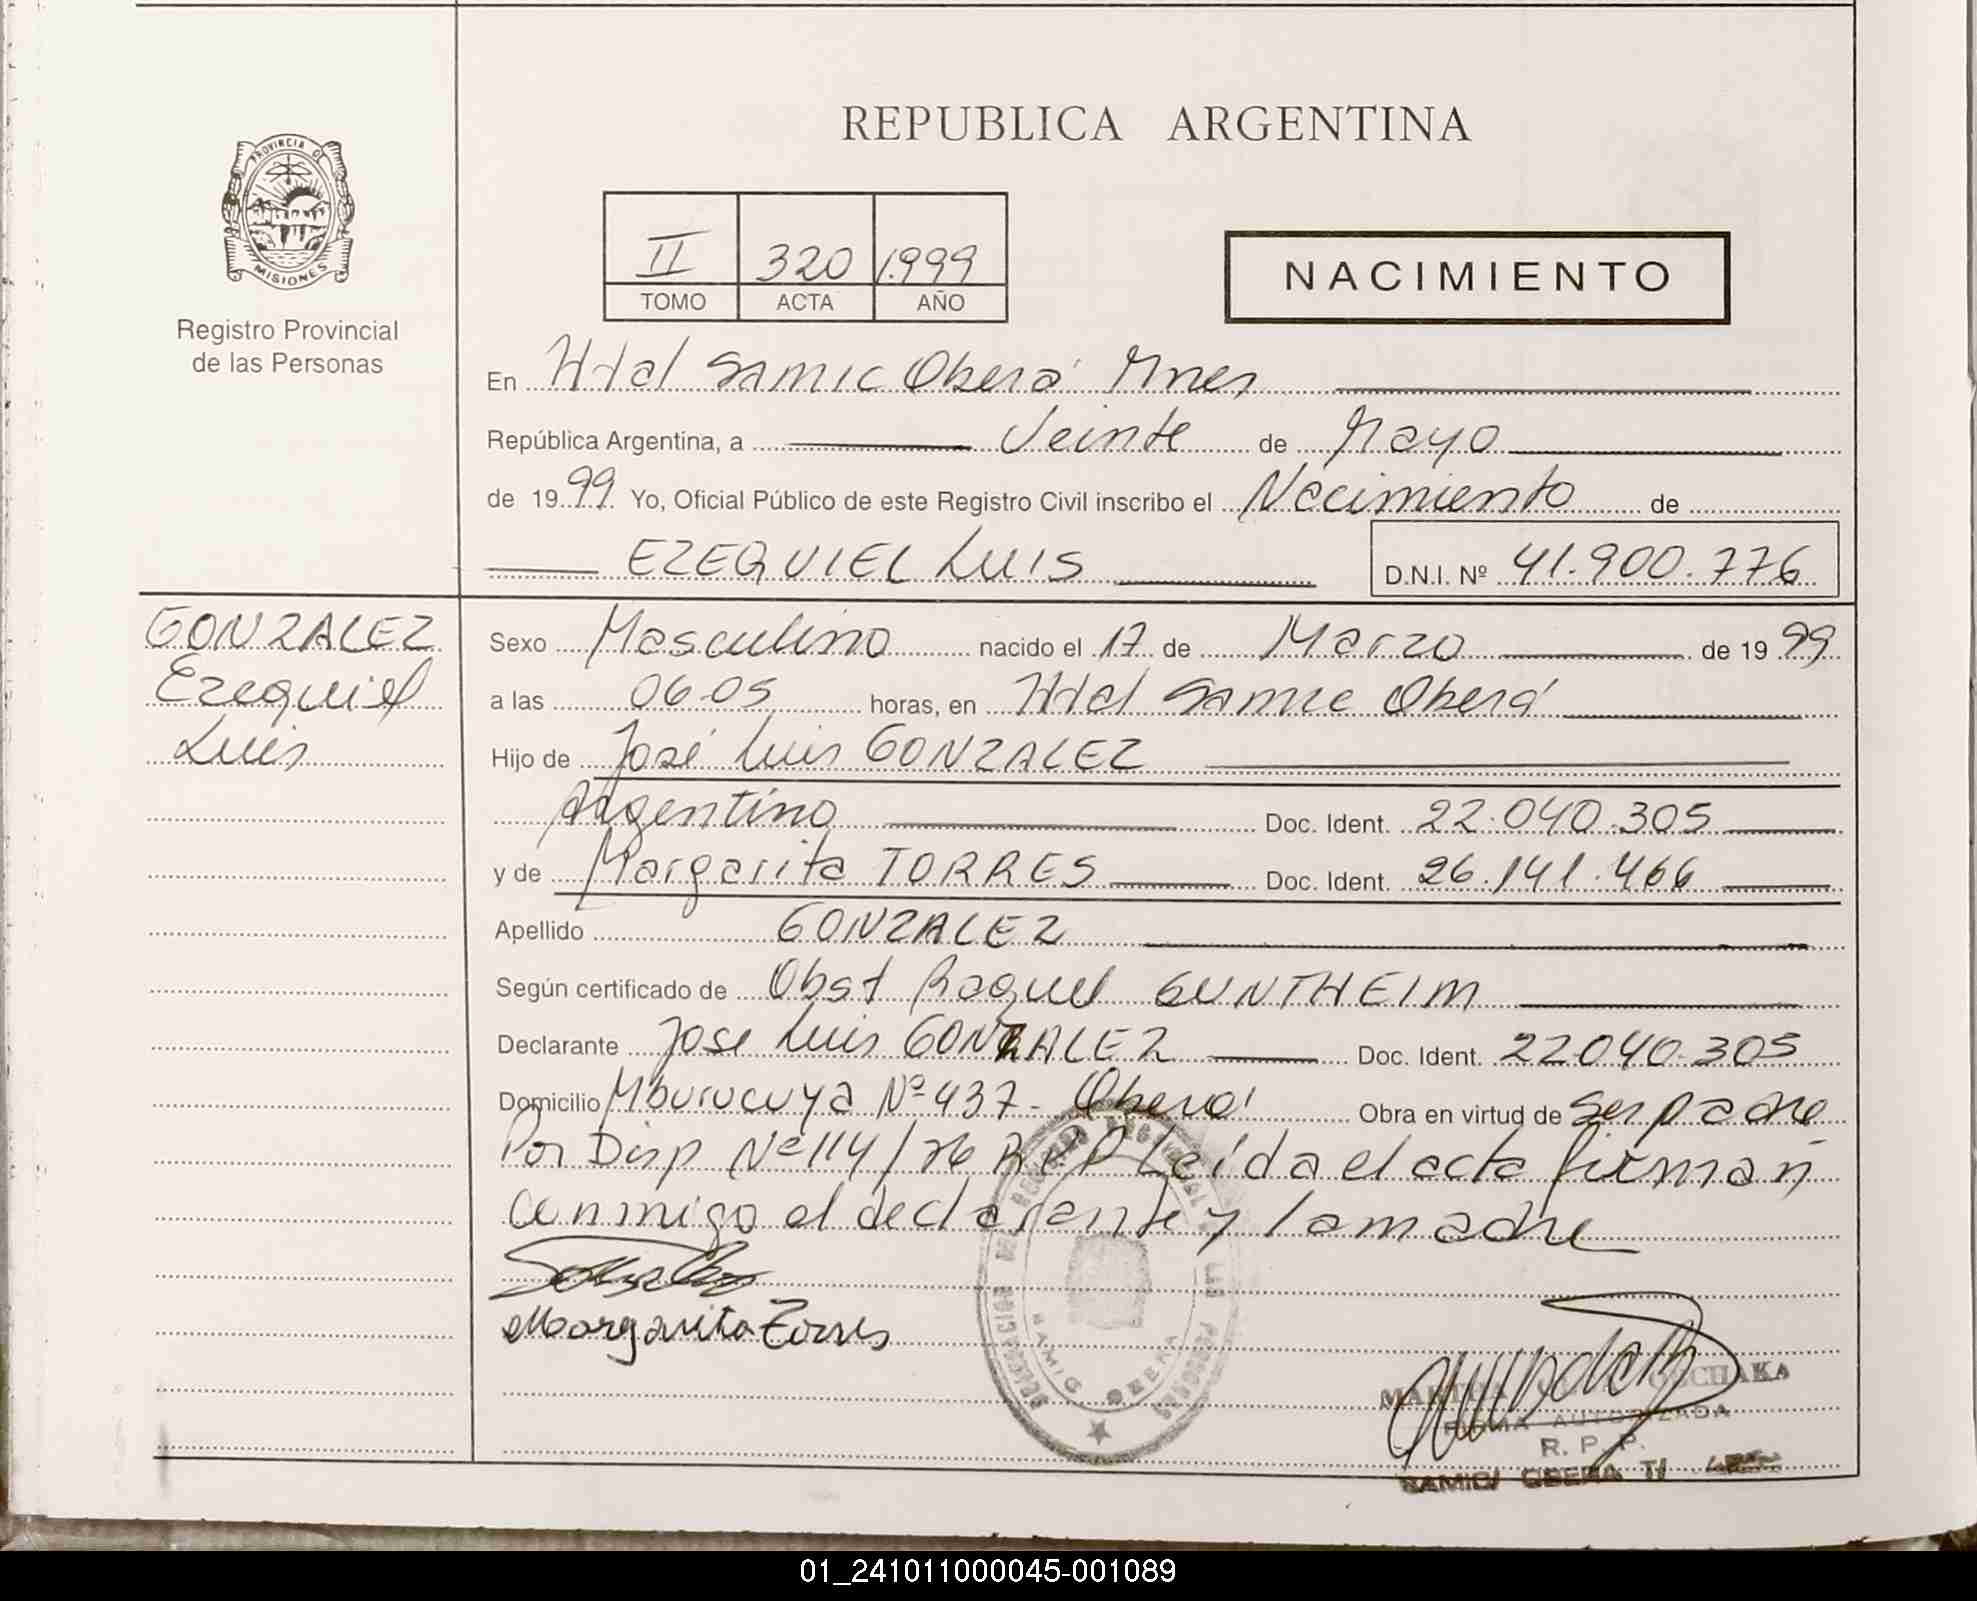 REPUBLICA ARGENTINA
PROVINCIA D
MISIONES
Registro Provincial
de las Personas
II 320 1.999
TOMO ACTA AÑO
NACIMIENTO
En Htal SAMIC Oberá Mnes
República Argentina, a Veinte de Mayo
de 1999 Yo, Oficial Público de este Registro Civil inscribo el Nacimiento de
EZEQUIEL LUIS D.N.I. Nº 41.900.776
GONZALEZ
Ezequiel
Luis
Sexo Masculino nacido el 17 de Marzo de 1999
a las 06.05 horas, en Htal Samic Oberá
Hijo de José Luis GONZALEZ
Argentino Doc. Ident. 22.040.305
y de Margarita TORRES Doc. Ident. 26.141.466
Apellido GONZALEZ
Según certificado de Obst Raquel GUNTHEIM
Declarante Jose Luis GONZALEZ Doc. Ident. 22040.305
Domicilio Mburucuya Nº 437 - Oberá Obra en virtud de ser padre
Por Disp Nº 114/76 RPP Leída el acta firman
conmigo el declarante y la madre
Margarita Torres
SAMIC OBERA
FIRMA AUTORIZADA
R. P. P.
SAMIC/ OBERA
01_241011000045-001089